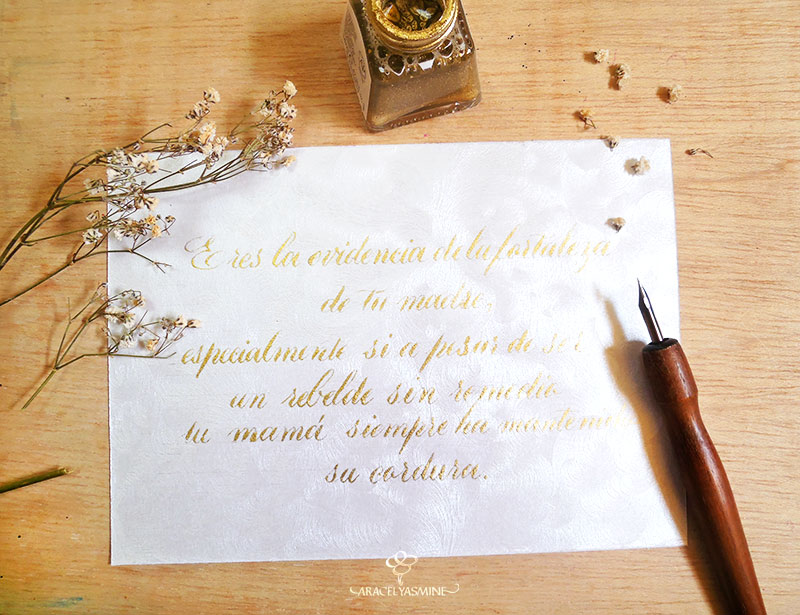 Eres la evidencia de la fortaleza
de tu madre,
especialmente si a pesar de ser
un rebelde sin remedio
tu mamá siempre ha mantenido
su cordura.
ARACELYASMINE